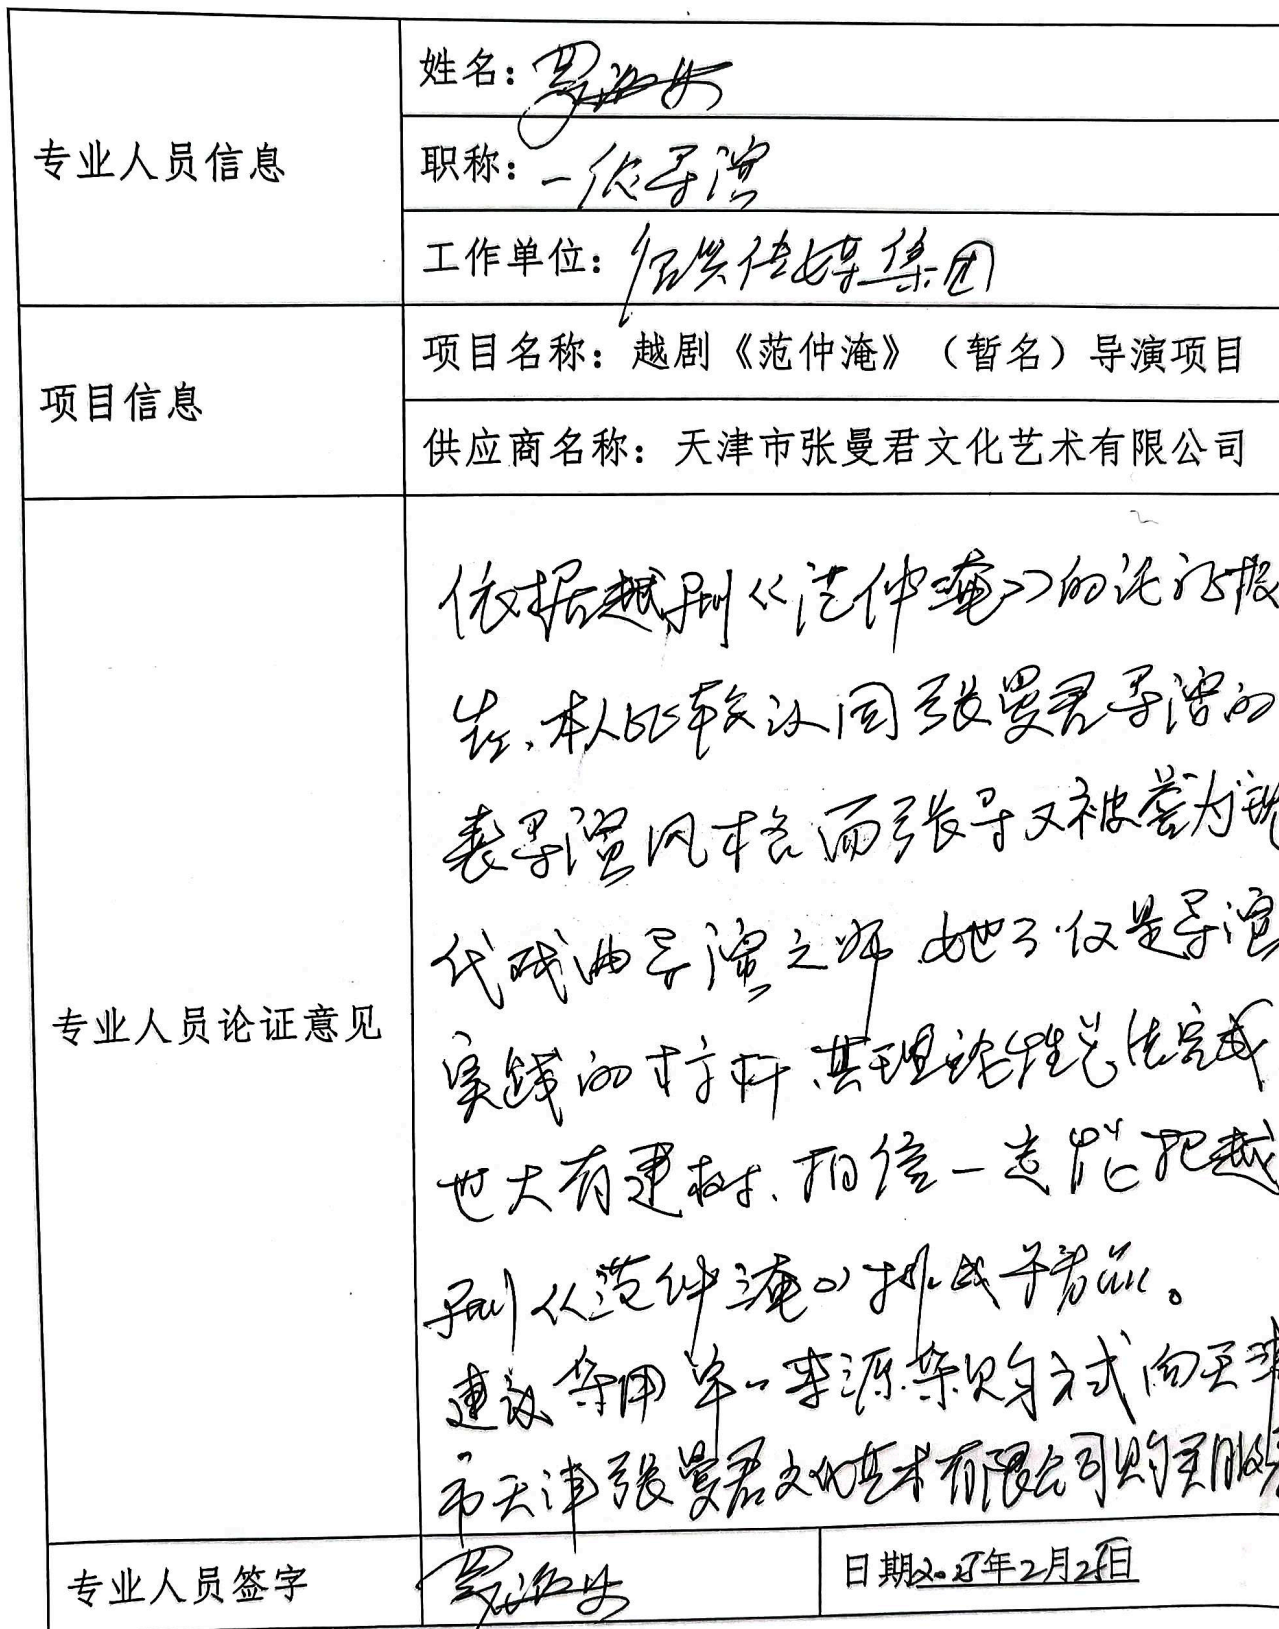 专业人员信息
姓名：
职称：一级导演
工作单位：绍兴传媒集团
项目信息
项目名称：越剧《范仲淹》（暂名）导演项目
供应商名称：天津市张曼君文化艺术有限公司
专业人员论证意见
依据越剧《范仲淹》的论证报
告，本人比较认同张曼君导演的
导演风格而张导又被誉为
代戏曲导演之师 她不仅是导演
实践的标杆，其理论性总结完成
也大有建树，相信一定能把越
剧《范仲淹》排成
建议采用单一来源采购方式向天津
市天津张曼君文化艺术有限公司购买服务
专业人员签字
日期2025年2月25日